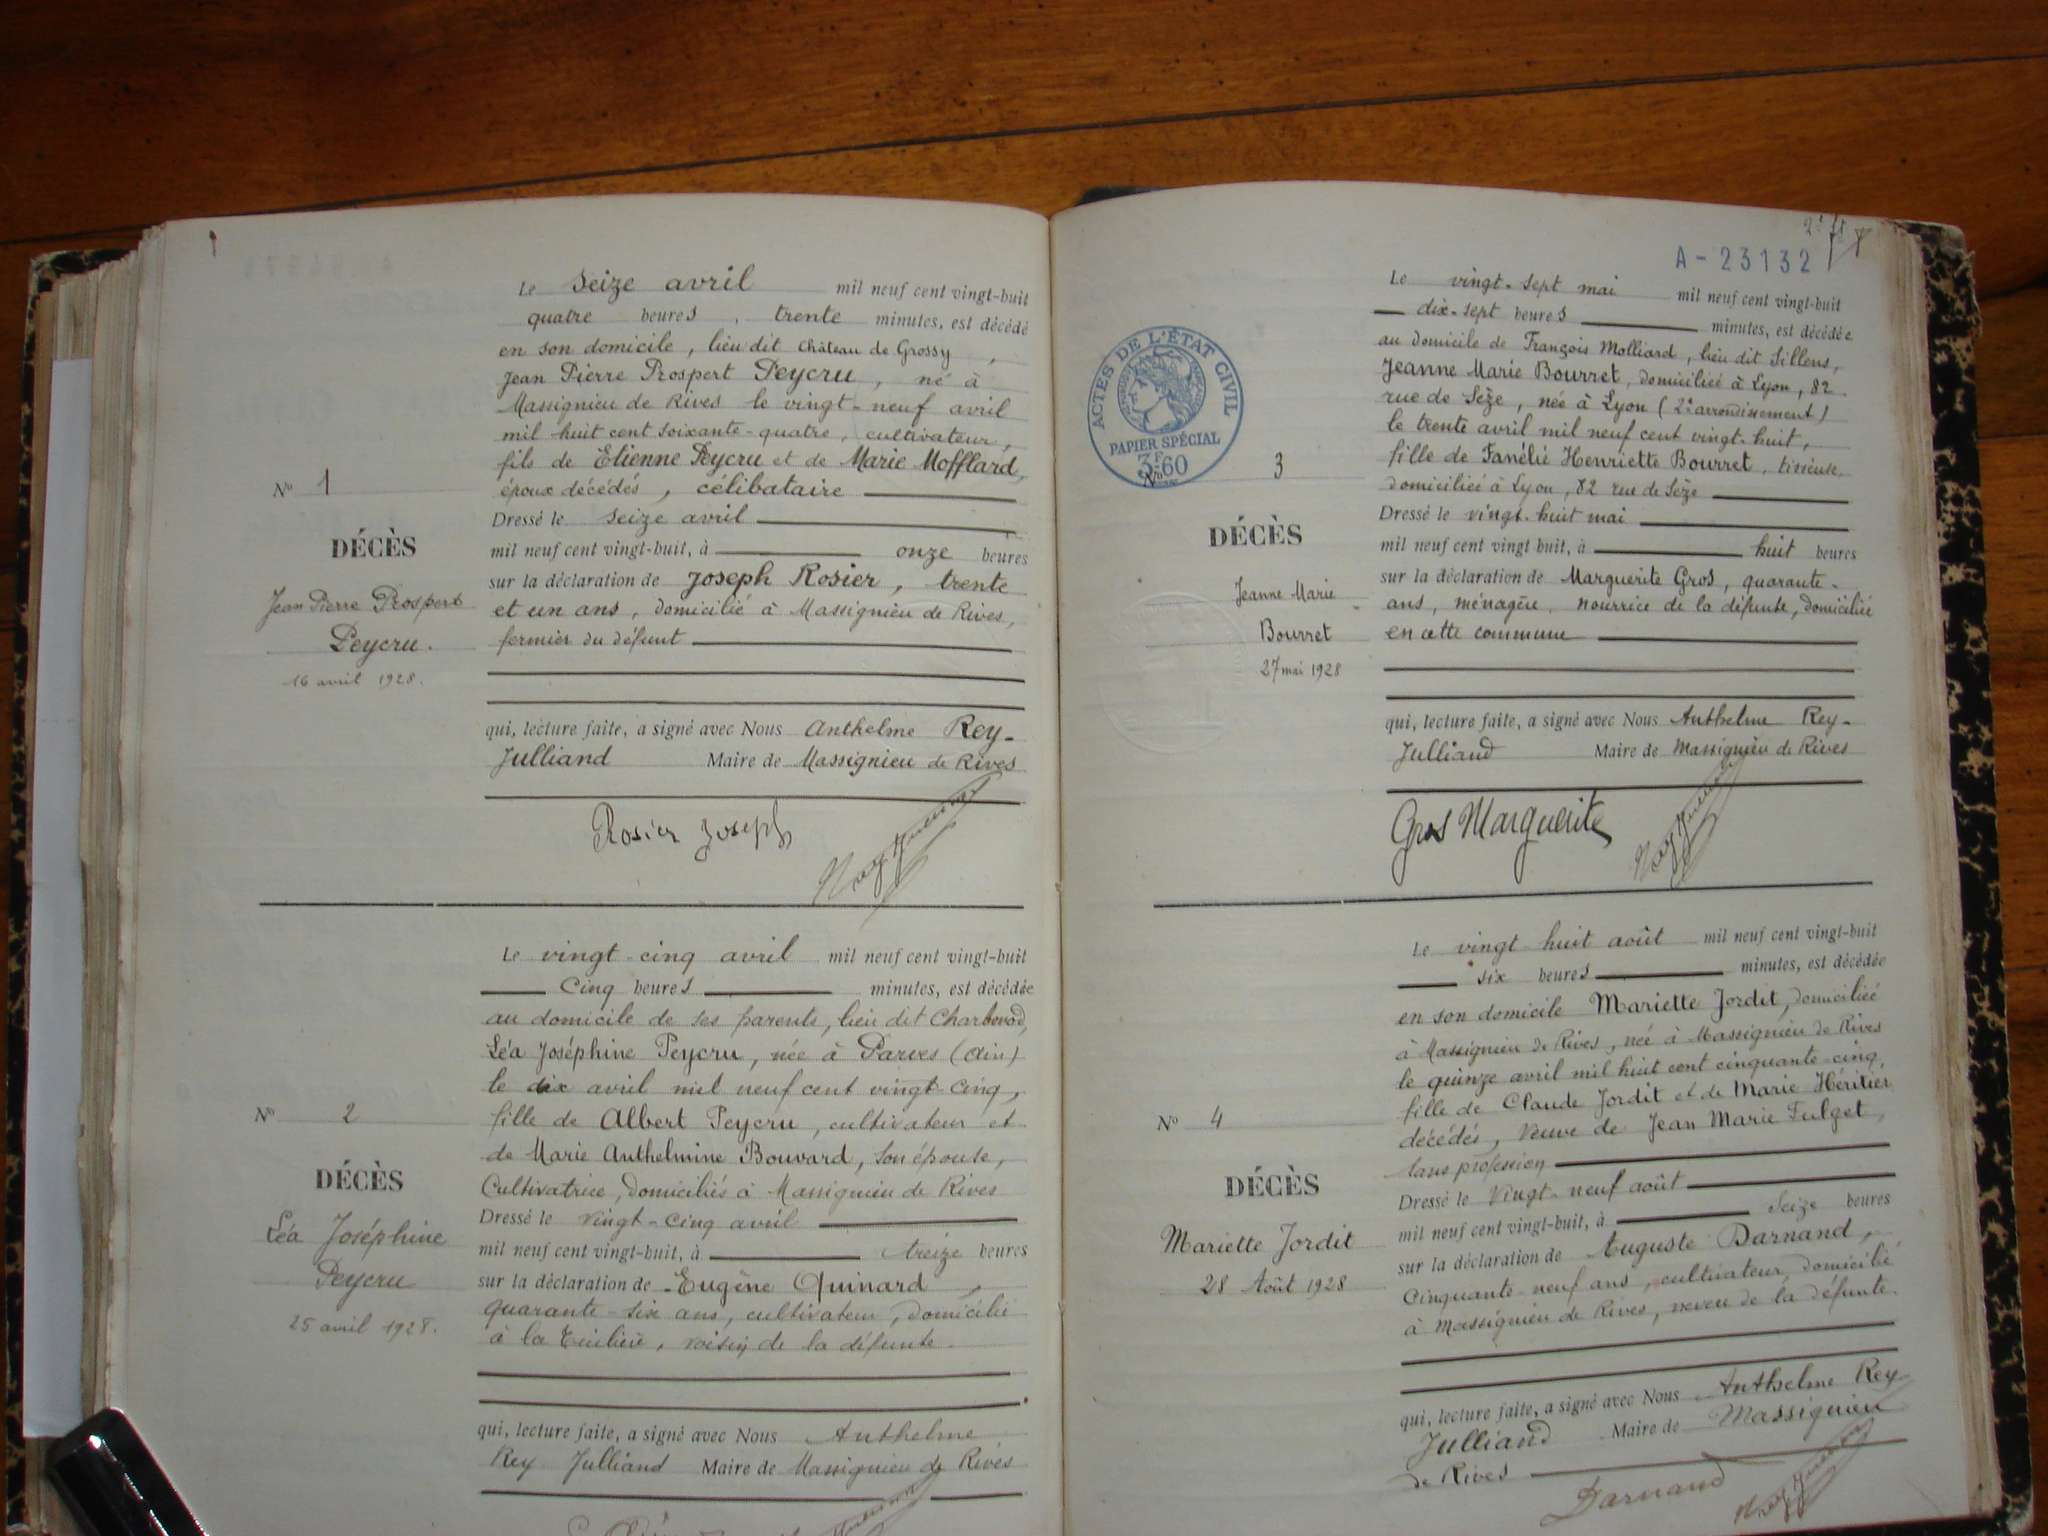 Le seize avril mil neuf cent vingt-huit
quatre heures, trente minutes, est décédé
en son domicile, lieu dit Château de Grossy,
Jean Pierre Prospert Peycru, né à
Massignieu de Rives le vingt-neuf avril
mil huit cent soixante-quatre, cultivateur,
fils de Etienne Peycru et de Marie Mofflard,
époux décédés, célibataire
Dressé le seize avril
mil neuf cent vingt-huit, à onze heures
sur la déclaration de Joseph Rosier, trente
et un ans, domicilié à Massignieu de Rives,
fermier du défunt
qui, lecture faite, a signé avec Nous Anthelme Rey-
Julliand Maire de Massignieu de Rives
Rosier Joseph
N° 1
DÉCÈS
Jean Pierre Prospert
Peycru.
16 avril 1928.
Le vingt-cinq avril mil neuf cent vingt-huit
cinq heures minutes, est décédée
au domicile de ses parents, lieu dit Charbonod,
Léa Joséphine Peycru, née à Parves (Ain)
le dix avril mil neuf cent vingt-cinq,
fille de Albert Peycru, cultivateur et
de Marie Anthelmine Bouvard, son épouse,
Cultivatrice, domiciliés à Massignieu de Rives
Dressé le vingt-cinq avril
mil neuf cent vingt-huit, à treize heures
sur la déclaration de Eugène Quinard,
quarante-six ans, cultivateur, domicilié
à la Tuilière, voisin de la défunte.
qui, lecture faite, a signé avec Nous Anthelme
Rey Julliand Maire de Massignieu de Rives
N° 2
DÉCÈS
Léa Joséphine
Peycru
25 avril 1928.
A-23132
ACTES DE L'ÉTAT CIVIL
PAPIER SPÉCIAL
3F.60
Le vingt-sept mai mil neuf cent vingt-huit
dix-sept heures minutes, est décédée
au domicile de François Molliard, lieu dit Sillens,
Jeanne Marie Bourret, domiciliée à Lyon, 82
rue de Sèze, née à Lyon (2e arrondissement)
le trente avril mil neuf cent vingt-huit,
fille de Fanélie Henriette Bourret, tisseuse,
domiciliée à Lyon, 82 rue de Sèze
Dressé le vingt-huit mai
mil neuf cent vingt huit, à huit heures
sur la déclaration de Marguerite Gros, quarante-
ans, ménagère, nourrice de la défunte, domiciliée
en cette commune
qui, lecture faite, a signé avec Nous Anthelme Rey-
Julliand Maire de Massignieu de Rives
Gros Marguerite
N° 3
DÉCÈS
Jeanne Marie
Bourret
27 mai 1928
Le vingt huit août mil neuf cent vingt-huit
six heures minutes, est décédée
en son domicile Mariette Jordit, domiciliée
à Massignieu de Rives, née à Massignieu de Rives
le quinze avril mil huit cent cinquante-cinq,
fille de Claude Jordit et de Marie Héritier
décédés, veuve de Jean Marie Fulget,
sans profession
Dressé le vingt-neuf août
mil neuf cent vingt-huit, à seize heures
sur la déclaration de Auguste Darnand,
Cinquante-neuf ans, cultivateur, domicilié
à Massignieu de Rives, neveu de la défunte.
qui, lecture faite, a signé avec Nous Anthelme Rey-
Julliand Maire de Massignieu
de Rives
Darnand
N° 4
DÉCÈS
Mariette Jordit
28 Août 1928